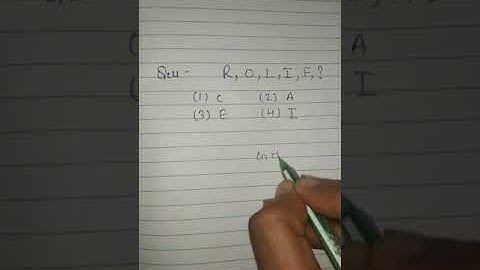 Que - R, O, L, I, F, ?
(1) C (2) A
(3) E (4) I